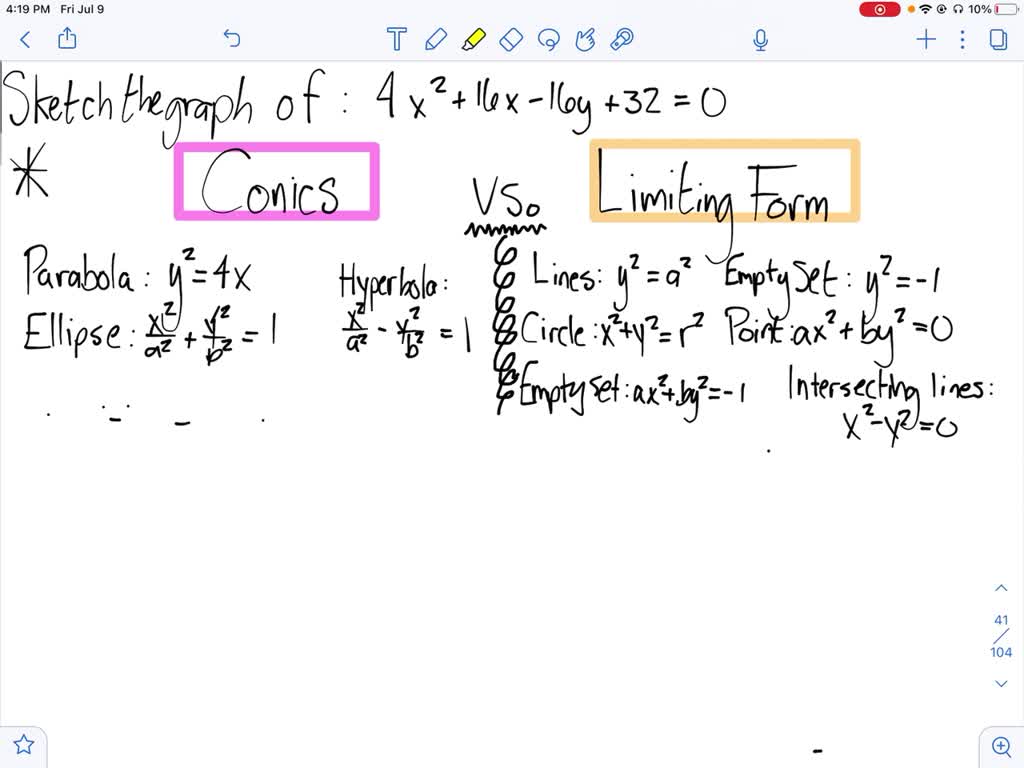 4:19 PM Fri Jul 9
10%
T
Sketch the graph of : 4x² + 16x - 16y + 32 = 0
* Conics vs. Limiting Form
Parabola: y² = 4x
Hyperbola: x²/a² - y²/b² = 1
Ellipse: x²/a² + y²/b² = 1
Lines: y² = a² Empty Set: y² = -1
Circle: x² + y² = r² Point: ax² + by² = 0
Empty set: ax² + by² = -1 Intersecting lines:
x² - y² = 0
41
/
104